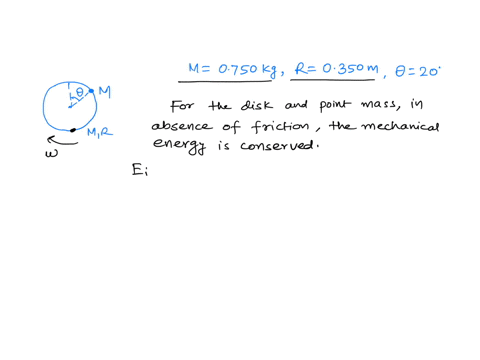 M = 0.750 kg, R = 0.350 m, θ = 20°
θ
M
M,R
ω
For the disk and point mass, in
absence of friction, the mechanical
energy is conserved.
Ei